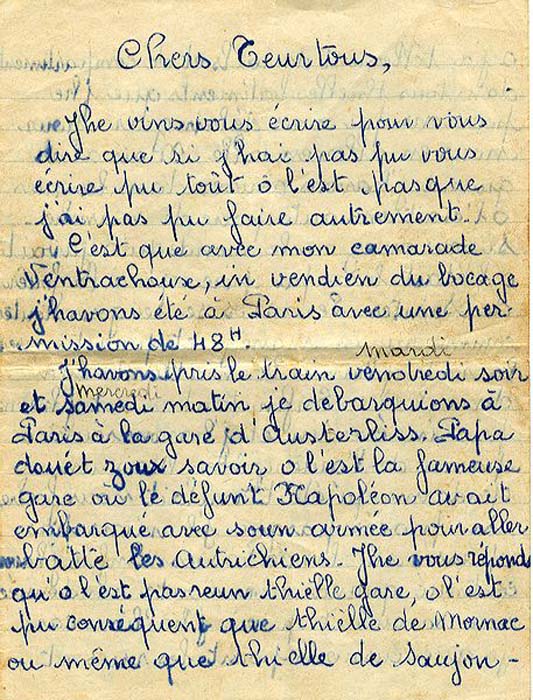 Chers Teurtous,
Jhe vins vous écrire pour vous
dire que si j'hai pas pu vous
écrire pu toût ô l'est pasque
j'ai pas pu faire autrement.
C'est que avec mon camarade
Ventrachoux, in vendien du bocage
j'havons été à Paris avec une per-
mission de 48H.
mardi
J'havons pris le train vendredi soir
mercredi
et samedi matin je debarquions à
Paris à la gare d'Austerliss. Papa
douét zoux savoir o l'est la fameuse
gare où le défunt Napoléon avait
embarqué avec soun armée pour aller
batte les Autrichiens. Jhe vous réponds
qu'o l'est pas reun thiélle gare, o l'est
pu conséquent que thiélle de Mornac
ou même que thielle de Saujon -